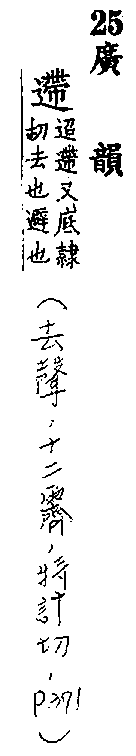 25廣韻
遰
迢遰又底隸
切去也避也
(去聲,十二霽,特計切,p.371)